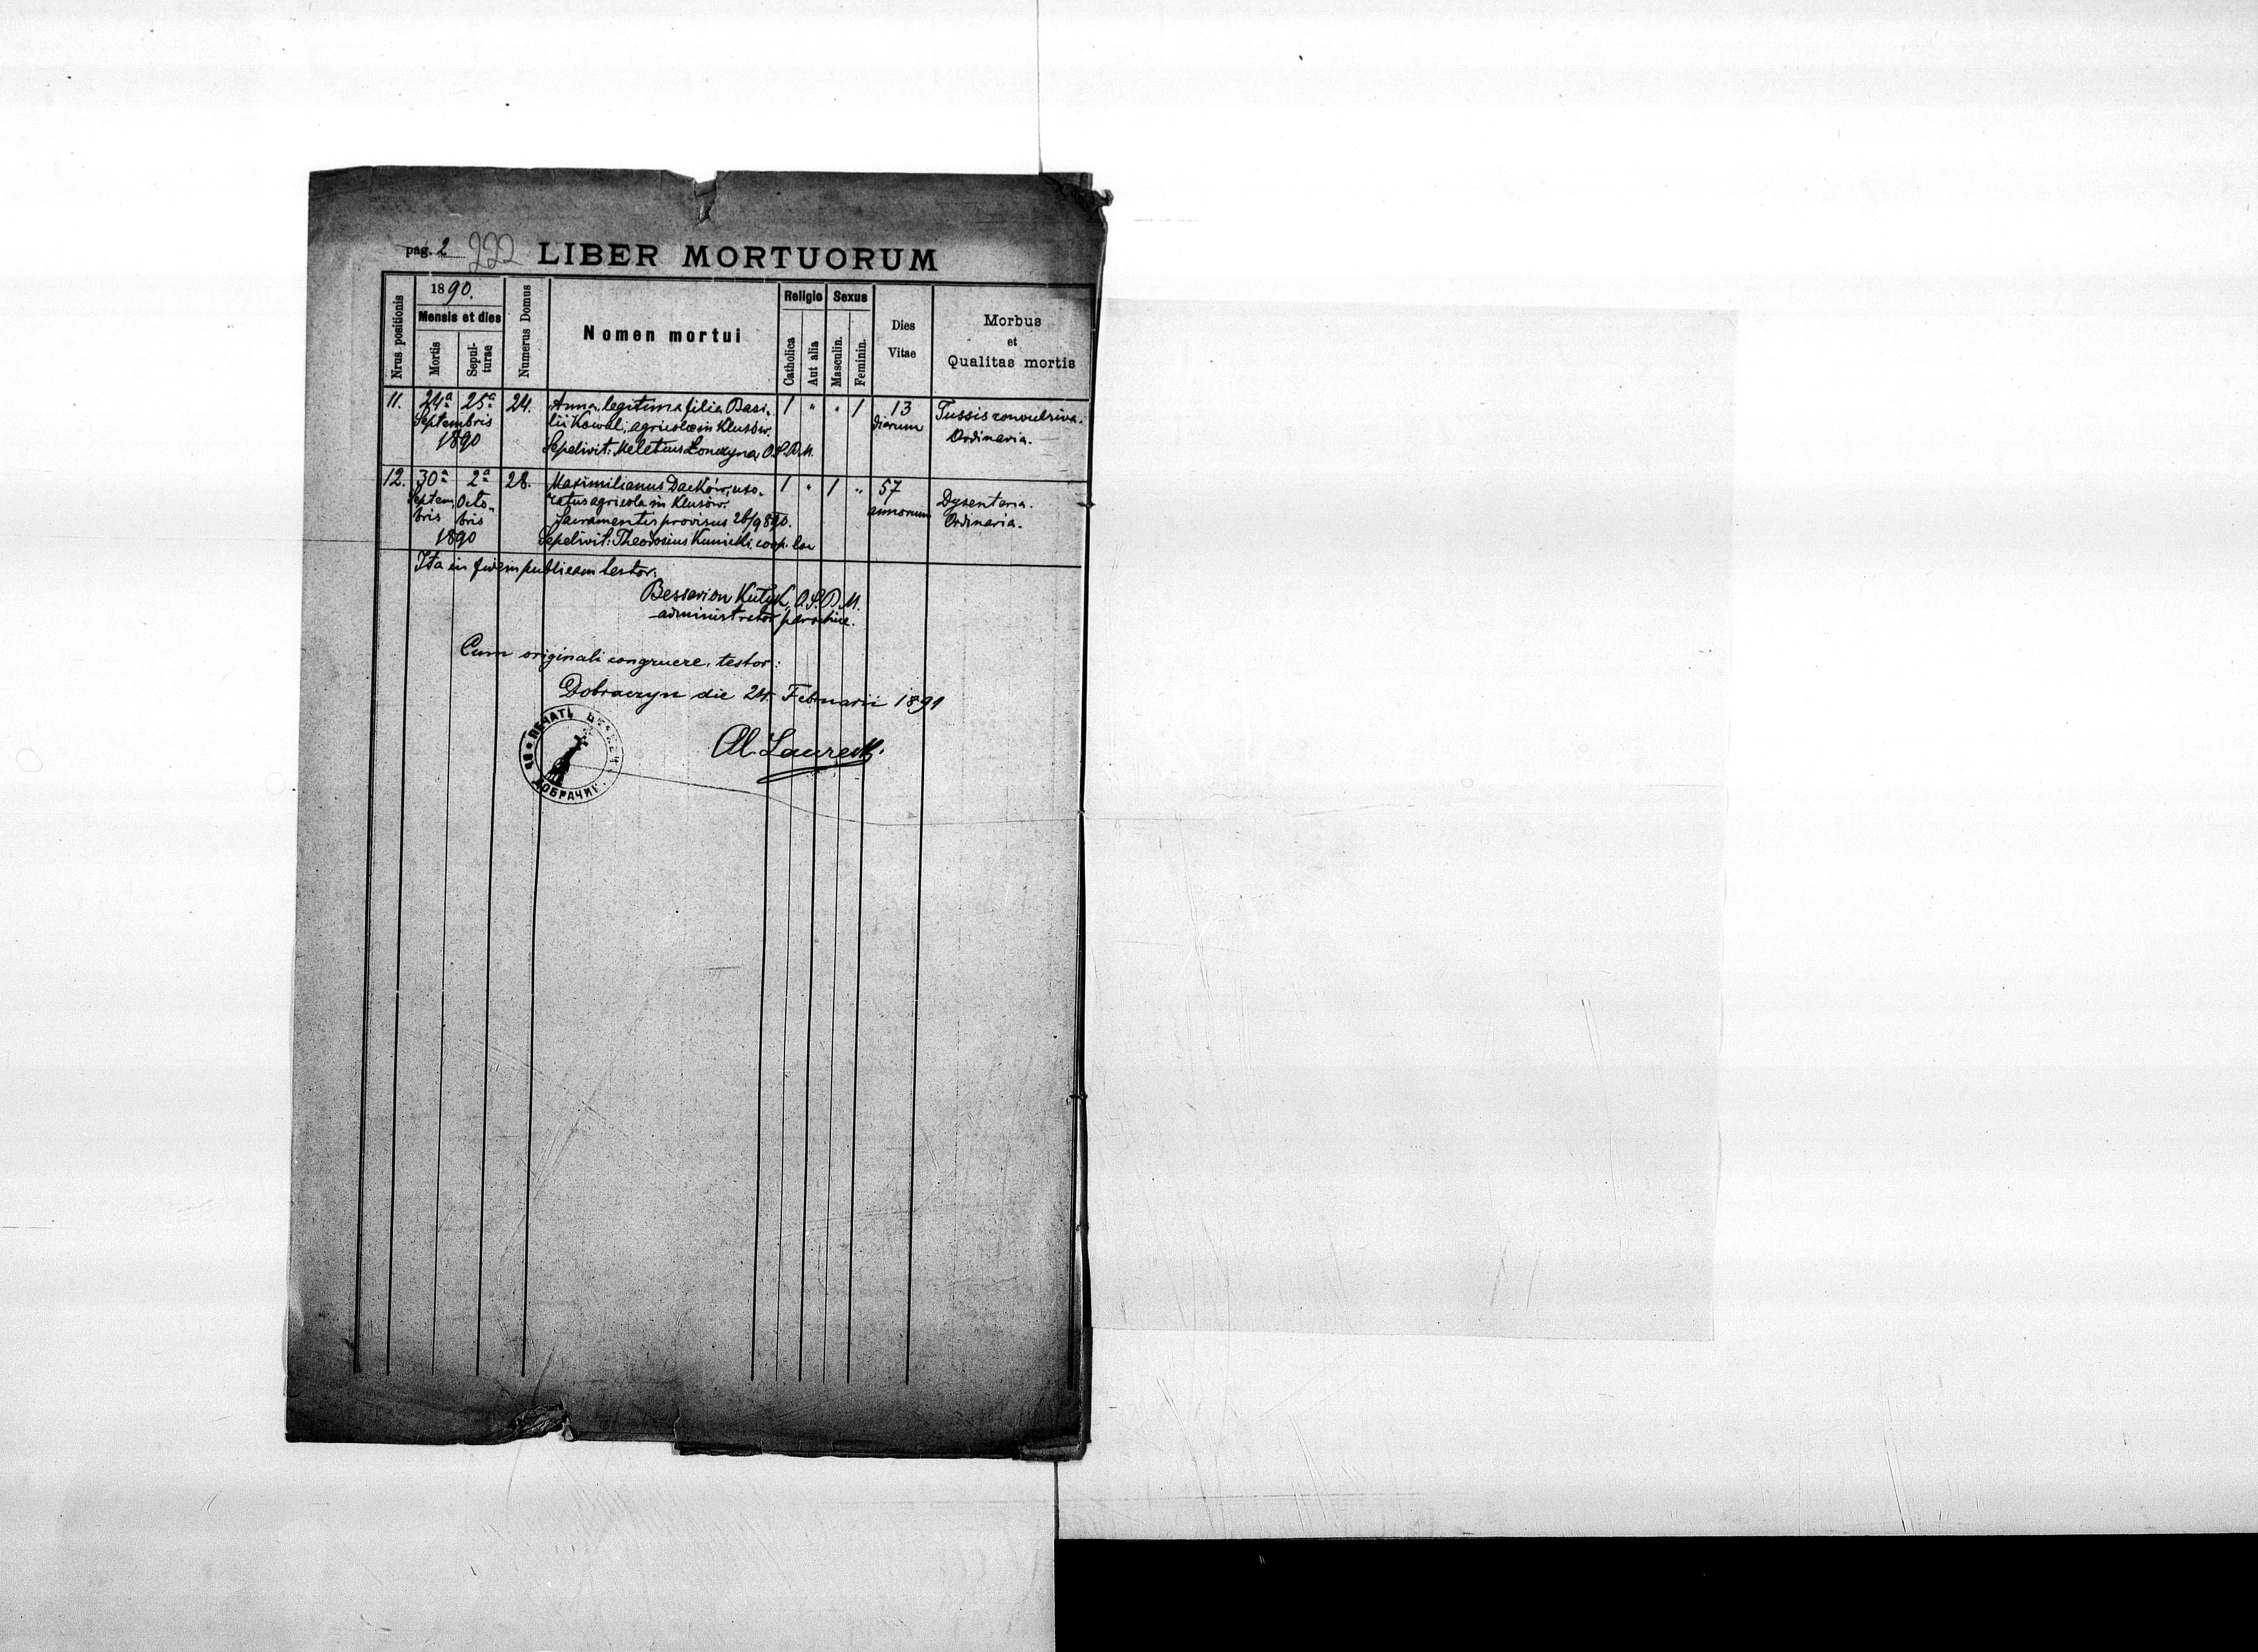 pag. 2 222 LIBER MORTUORUM
Nrus positionis
1890.
Mensis et dies
Mortis
Sepul-
turae
Numerus Domus
Nomen mortui
Religio
Catholica
Aut alia
Sexus
Masculin.
Feminin.
Dies
Vitae
Morbus
et
Qualitas mortis
11. 24a 25a 24. Anna, legitima filia Basi- 1 " " 1 13 Tussis convulsiva.
Septembris lii Kowal, agricolae in Klusów. diarum Ordinaria.
1890 Sepelivit: Meletius Łonczyna O.S.B.M.
12. 30a 2a 28. Maximilianus Daćków, uxo- 1 " 1 " 57 Dysenteria.
Septem Octo- ratus agricola in Klusów. annorum Ordinaria.
bris bris Sacramentis provisus 26/9 890.
1890 Sepelivit: Theodosius Kunicki, coop.
Ita in fidem publicam testor.
Bessarion Kutyk, O.S.B.M.
administrator parochiae.
Cum originali congruere, testor:
Dobraczyn die 24. Februarii 1891
Al.
ПЕЧАТЬ
ДОБРАЧИН